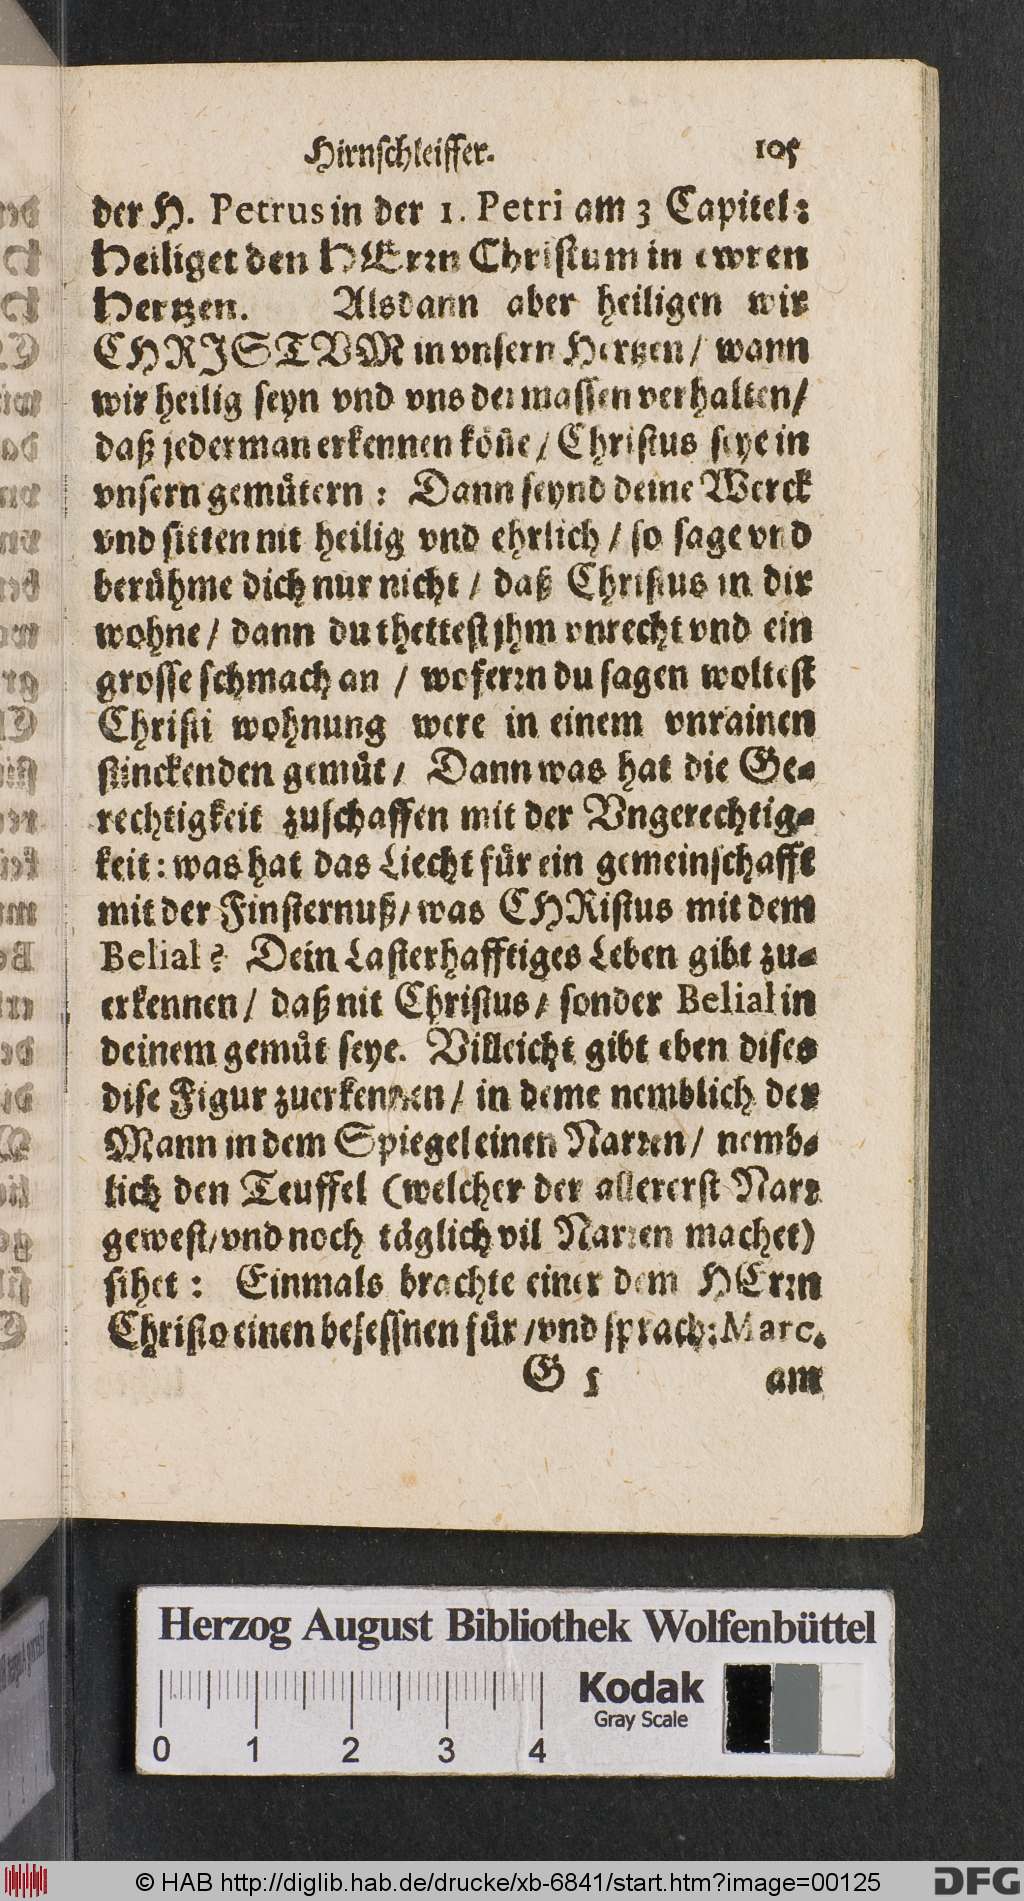 Hirnschleiffer. 105
der H. Petrus in der 1. Petri am 3 Capitel:
Heiliget den HErꝛn Christum in ewren
Hertzen. Alsdann aber heiligen wir
CHRJSTVM in vnsern Hertzen / wann
wir heilig seyn vnd vns der massen verhalten /
daß jederman erkennen köñe / Christus seye in
vnsern gemuͤtern : Dann seynd deine Werck
vnd sitten nit heilig vnd ehrlich / so sage vnd
beruͤhme dich nur nicht / daß Christus in dir
wohne / dann du thettest jhm vnrecht vnd ein
grosse schmach an / woferꝛn du sagen woltest
Christi wohnung were in einem vnrainen
stinckenden gemuͤt / Dann was hat die Ge-
rechtigkeit zuschaffen mit der Vngerechtig-
keit : was hat das Liecht fuͤr ein gemeinschafft
mit der Finsternuß / was CHRistus mit dem
Belial? Dein Lasterhafftiges Leben gibt zu-
erkennen / daß nit Christus / sonder Belial in
deinem gemuͤt seye. Villeicht gibt eben dises
dise Figur zuerkennen / in deme nemblich der
Mann in dem Spiegel einen Narꝛen / nemb-
lich den Teuffel (welcher der allererst Narꝛ
gewest / vnd noch taͤglich vil Narꝛen machet)
sihet : Einmals brachte einer dem HErꝛn
Christo einen besessnen fuͤr / vnd sprach: Marc.
G 5 am
Herzog August Bibliothek Wolfenbüttel
Kodak
Gray Scale
0 1 2 3 4
© HAB http://diglib.hab.de/drucke/xb-6841/start.htm?image=00125
DFG